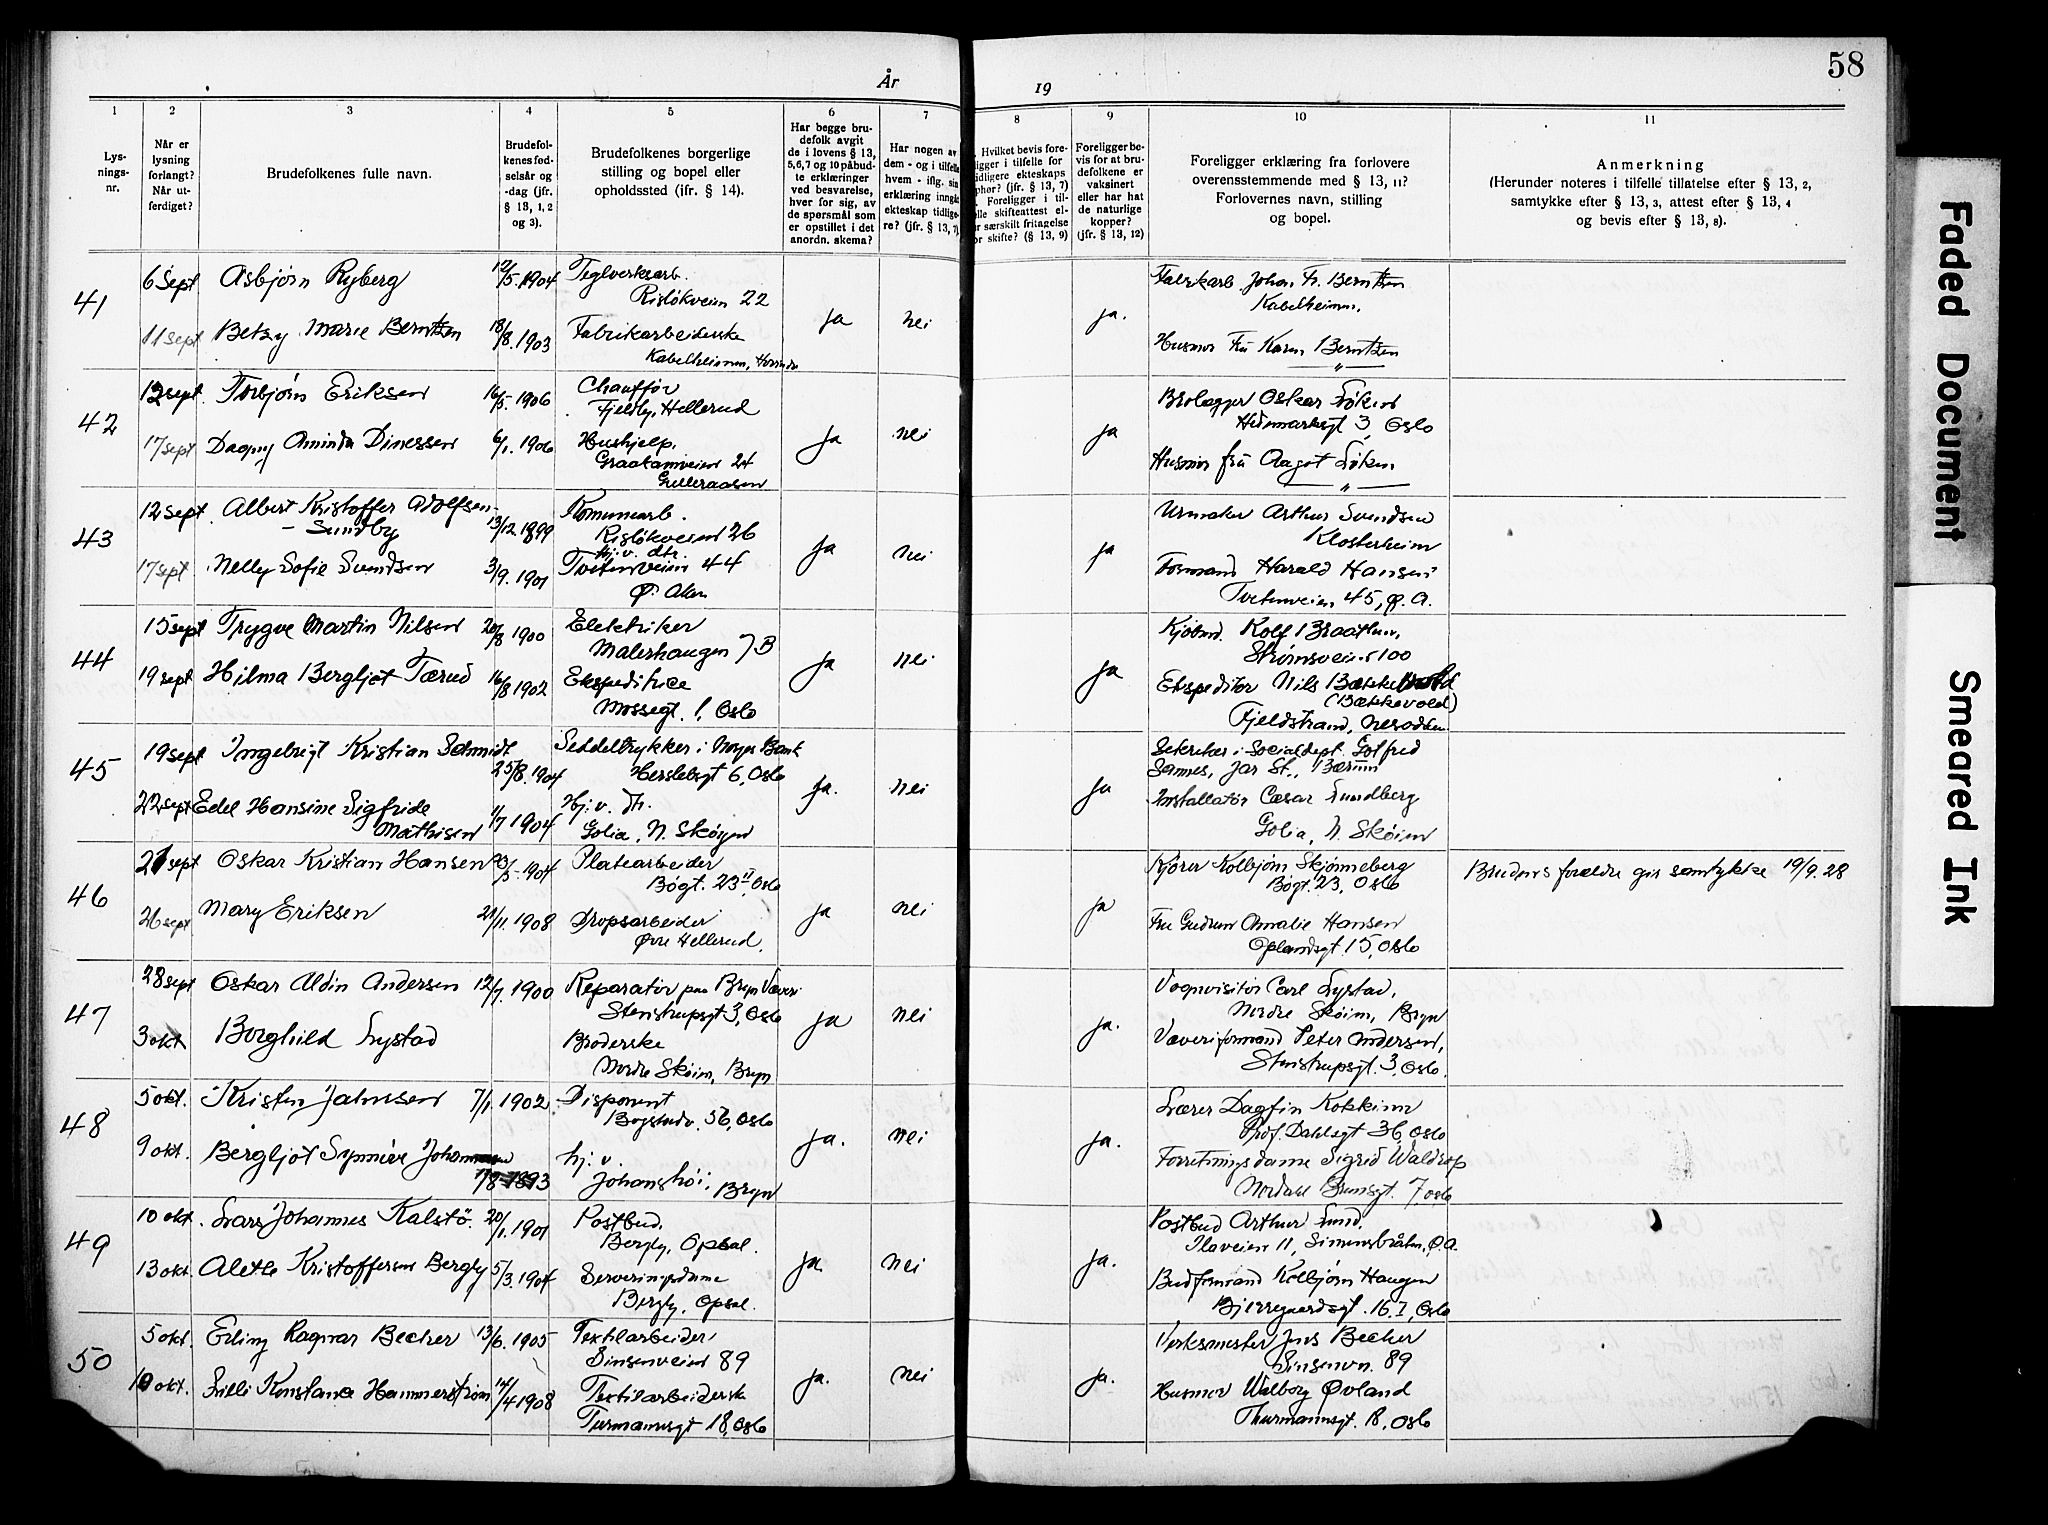 58
År
19
1
2
3
4
5
6
7
8
9
10
11
Lys-
nings-
nr.
Når er
lysning
forlangt?
Når ut-
ferdiget?
Brudefolkenes fulle navn.
Brudefol-
kenes fød-
selsår og
-dag (jfr.
§ 13, 1, 2
og 3).
Brudefolkenes borgerlige
stilling og bopel eller
opholdssted (ifr. § 14).
Har begge bru-
defolk avgit
de i lovens § 13,
5,6,7 og 10 påbud-
te erklæringer
ved besvarelse,
hver for sig, av
de spørsmål som
er opstillet i det
anordn. skema?
Har nogen av
dem - og i tilfelle
hvem - iflg. sin
erklæring inngå
ekteskap tidlige-
re? (jfr. § 13, 7)
Hvilket bevis fore-
ligger i tilfelle for
tidligere ekteskaps
ophør? (jfr. § 13, 7)
Foreligger i til-
elle skifteattest el-
r særskilt fritagelse
or skifte? (§ 13, 9)
Foreligger be-
vis for at bru-
defolkene er
vaksinert
eller har hat
de naturlige
kopper?
(jfr. § 13, 12)
Foreligger erklæring fra forlovere
overensstemmende med § 13, 11?
Forlovernes navn, stilling
og bopel.
Anmerkning
(Herunder noteres i tilfelle tillatelse efter § 13, 2,
samtykke efter § 13, 3, attest efter § 13, 4
og bevis efter § 13, 8).
41
6 Sept Asbjørn Ryberg 12/5. 1904 Teglverksarb.
Risløkveien 22
11 sept Betzy Marie Berntzen 18/8. 1903 Fabrikarbeiderske
Kabelheimen,
ja nei ja.
Fabrkarb. Johan Fr. Berntzen
Kabelheimen.
Husmor Fru Karen Berntzen
— " —
42
12 sept. Torbjørn Eriksen 16/5. 1906 Chauffør
Fjeldby, Hellerud
17 sept Dagny Aminda Dinessen 6/1. 1906 Hushjelp.
Graakamveien 24
Gulleraasen
ja nei ja
Brolægger Oskar Løken
Hedmarksgt 3, Oslo
Husmor fru Aagot Løken
— " —
43
12 sept. Albert Kristoffer Adolfsen-
- Sundby 13/12. 1899 Komunearb.
Risløkveien 26
17 sept Nelly Sofie Svendsen 3/9. 1901 hj. v. dtr.
Tvetenveien 44
Ø. Aker
ja nei ja
Urmaker Arthur Svendsen
Klosterheim
Formand Harald Hansen
Tvetenveien 45, Ø. A.
44
15 sept Trygve Martin Nilsen 20/8 1900 Elektriker
Malerhaugen 7 B
19 sept Hilma Bergljot Tærud 16/8 1902 Ekspeditrice
Mossegt. 1, Oslo
ja nei ja
Kjøbmd. Rolf Braathen,
Strømsveien 100
Ekspeditør Nils
(Bækkevold)
Fjeldstrand, Nesodden
45
19 sept Ingebrigt Kristian Schmidt 25/8. 1904 Seddeltrykker i Norges Bank
Herslebsgt 6, Oslo
22 sept Edel Hansine Sigfride
Mathisen 1/7 1904 Hj. v. dtr.
Golia, N. Skøyen
ja. nei ja
Sekretær i Socialdept. Gotfred
Sannes, Jar St., Bærum
Installatør Cæsar Lundberg
Golia, N. Skøien
46
21 sept Oskar Kristian Hansen /5 1904 Platearbeider
Bøgt. 23 II, Oslo
26 sept Mary Eriksen 21/11. 1908 Dropsarbeider
Øvre Hellerud.
ja nei ja
Kjører Kolbjørn Skjønneberg
Bøgt. 23, Oslo
Fru Gudrun Amalie Hansen
Oplandsgt. 15, Oslo
Brudens foreldre gir samtykke 19/9. 28
47
28 sept Oskar Aldin Andersen 12/7. 1900 Reparatør paa Bryn Væveri
Stenstrupsgt 3, Oslo
3 okt Borghild Lystad Broderske
Nordre Skøien, Bryn
ja nei ja.
Vognvisitør Carl Lystad,
Nordre Skøien, Bryn
Væveriformand Peter Andersen,
Stenstrupsgt. 3, Oslo.
48
5 okt. Kristen Jahnsen 7/1. 1902 Disponent
Bogstadv. 56, Oslo
9 okt. Bergljot Synnøve 7/8 1893 hj. v.
Johanshøi, Bryn
ja. nei ja.
Lærer Dagfin Kokkinn
Prof. Dahlsgt 36, Oslo
Forretningsdame Sigrid
Nordahl Brunsgt. 7, Oslo
49
10 okt. Lars Johannes Kalstø. 20/1. 1901 Postbud.
Bergly, Opsal.
13 okt. Alethe Kristoffersen Bergly 5/3. 1904 Serveringsdame
Bergly, Opsal.
ja. nei ja.
Postbud Arthur Lund.
Plaveien 11, Simensbråten, Ø. A.
Budformand Kolbjørn Haugen
Bjerregaardsgt. 16 I, Oslo
50
5 okt. Erling Ragnar Becher 13/6. 1905 Textilarbeider
Sinsenveien 89
10 okt. Lilli Konstance Hammerstrøm 14/4 1908 Textilarbeiderske
Turmannsgt 18, Oslo
ja. nei ja.
Verksmester Jens Becher
Sinsenvn. 89
Husmor Walborg Øvland
Thurmannsgt. 18, Oslo
Faded Document
Smeared Ink